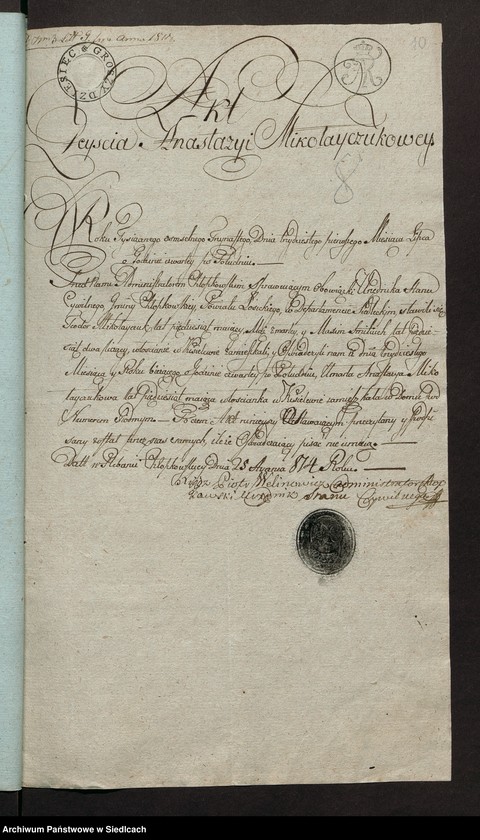 10
DZIESIEC GROSZY
Akt
Zeyscia Anastazyi Mikołayczukowey
Roku Tysiącznego osmsetnego Trzynastego, Dnia trzydziestego pierwszego Miesiąca Lipca
o Godzinie czwarty po Południu. —
Przed Nami Administratorem Chłopkowskim Sprawuiącym Obowiązki Urzędnika Stanu
Cywilnego, Gminy Chłopkowskiey, Powiatu Łosickiego, w Departamencie Siedleckim stawili się
Teodor Mikołayczuk lat pięćdziesiąt maiący Mąż zmarły, y Maxim lat
dwa maiący, włościanie w zamieszkali, y Oświadczyli nam iż dnia trzydziestego
Miesiąca y Roku bieżącego o godzinie czwarty po Południu, Umarła Anastazya Miko
łayczukowa lat pięćdziesiąt maiąca włościanka w zamieszkała w Domu pod
Numerem Siodmym. — Po czem Akt ninieyszy Oswiadczaiącym przeczytany y Podpi
sany został przez nas samych, ile że Oświadczaiący pisać nie umieią. —
Datt w Plebanii Chłopkowskiey Dnia 25 Stycznia 1814 Roku. —
Xiądz Piotr Administrator Chłop
kowski Urzędnik Stanu Cywilnego
Archiwum Państwowe w Siedlcach